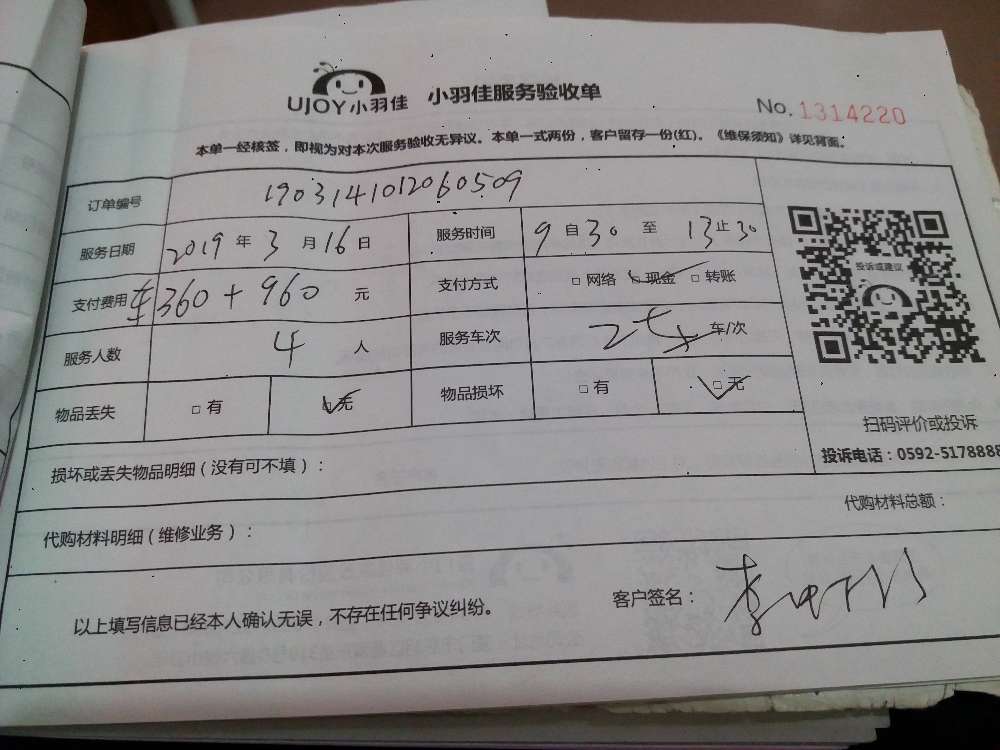 UJOY小羽佳 小羽佳服务验收单
No. 1314220
本单一经核签，即视为对本次服务验收无异议。本单一式两份，客户留存一份(红)。《维保须知》详见背面。
订单编号 1903141012060509
服务日期 2019 年 3 月 16 日 服务时间 9 自 30 至 13 止 30
支付费用 车360+960 元 支付方式 □ 网络 □ 现金 □ 转账
服务人数 4 人 服务车次 2 车/次
物品丢失 □ 有 □ 无 物品损坏 □ 有 □ 无
投诉或建议
扫码评价或投诉
投诉电话：0592-5178888
损坏或丢失物品明细（没有可不填）：
代购材料明细（维修业务）： 代购材料总额：
以上填写信息已经本人确认无误，不存在任何争议纠纷。 客户签名：